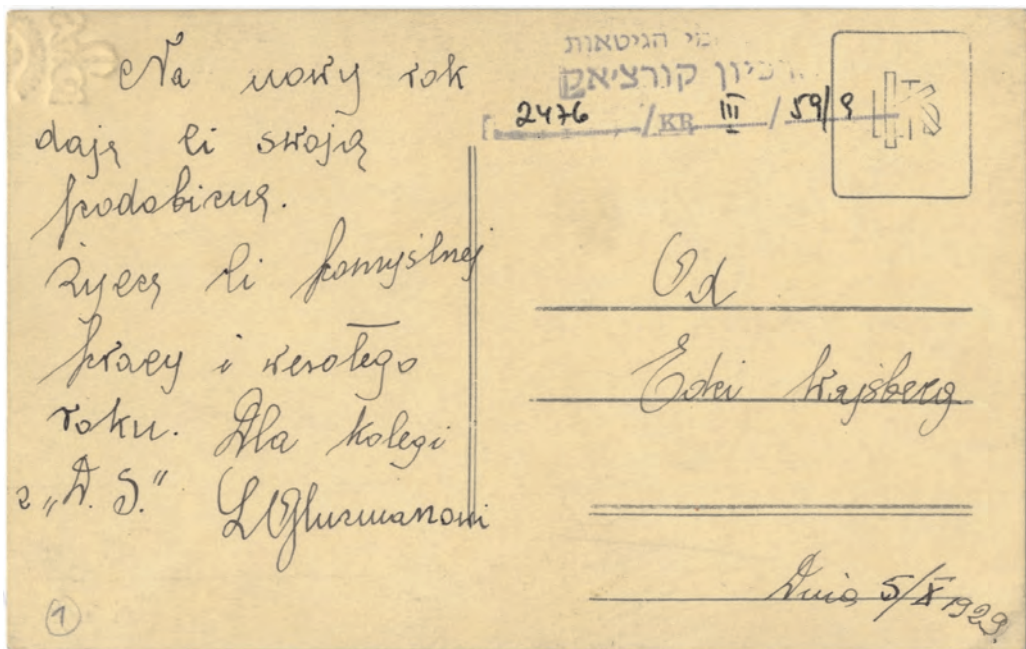 Na nowy rok
daję Ci swoją
podobiznę.
Życzę Ci pomyślnej
pracy i wesołego
roku. Dla kolegi
z „D. S." L Gluzmanowi
1
הגיטאות
קורציאק
2476 /KR III / 59/9
Od
Wajsberg
Dnia 5/X 1929.